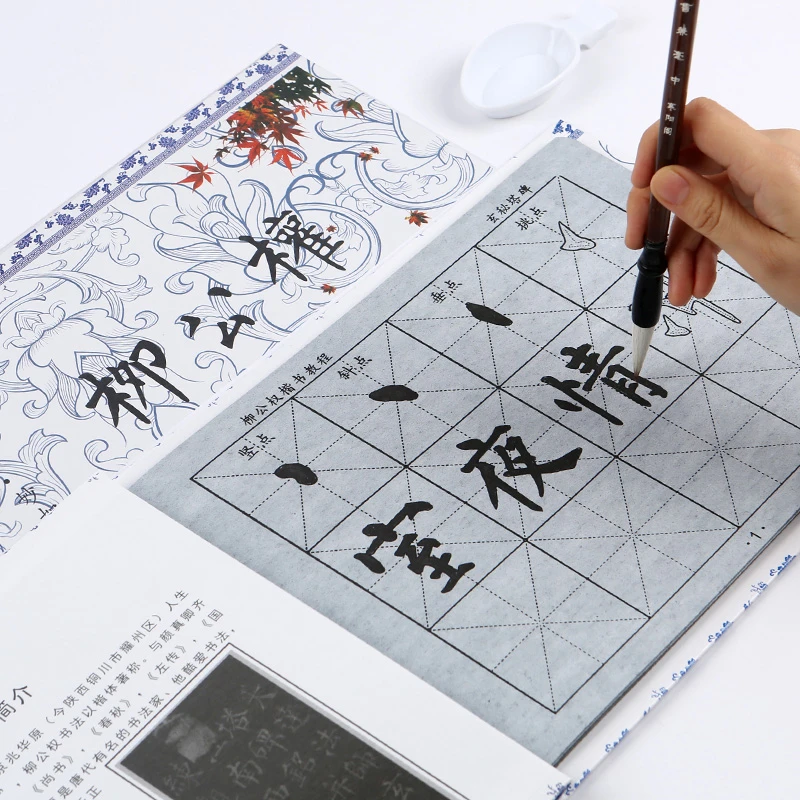 柳公權
柳公权楷书教程
玄秘塔碑
竖点
斜点
垂点
挑点
室
夜
情
·1·
简介
京兆华原（今陕西铜川市耀州区）人生
，柳公权书法以楷体著称，与颜真卿齐
《尚书》，《春秋》，《左传》，《国
是唐代有名的书法家、他酷爱书法，